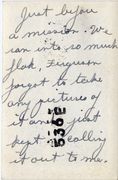 Just before
a mission. We
ran into so much
flak, Ferguson
forgot to take
any pictures of
it and just
kept calling
it out to me.
536E